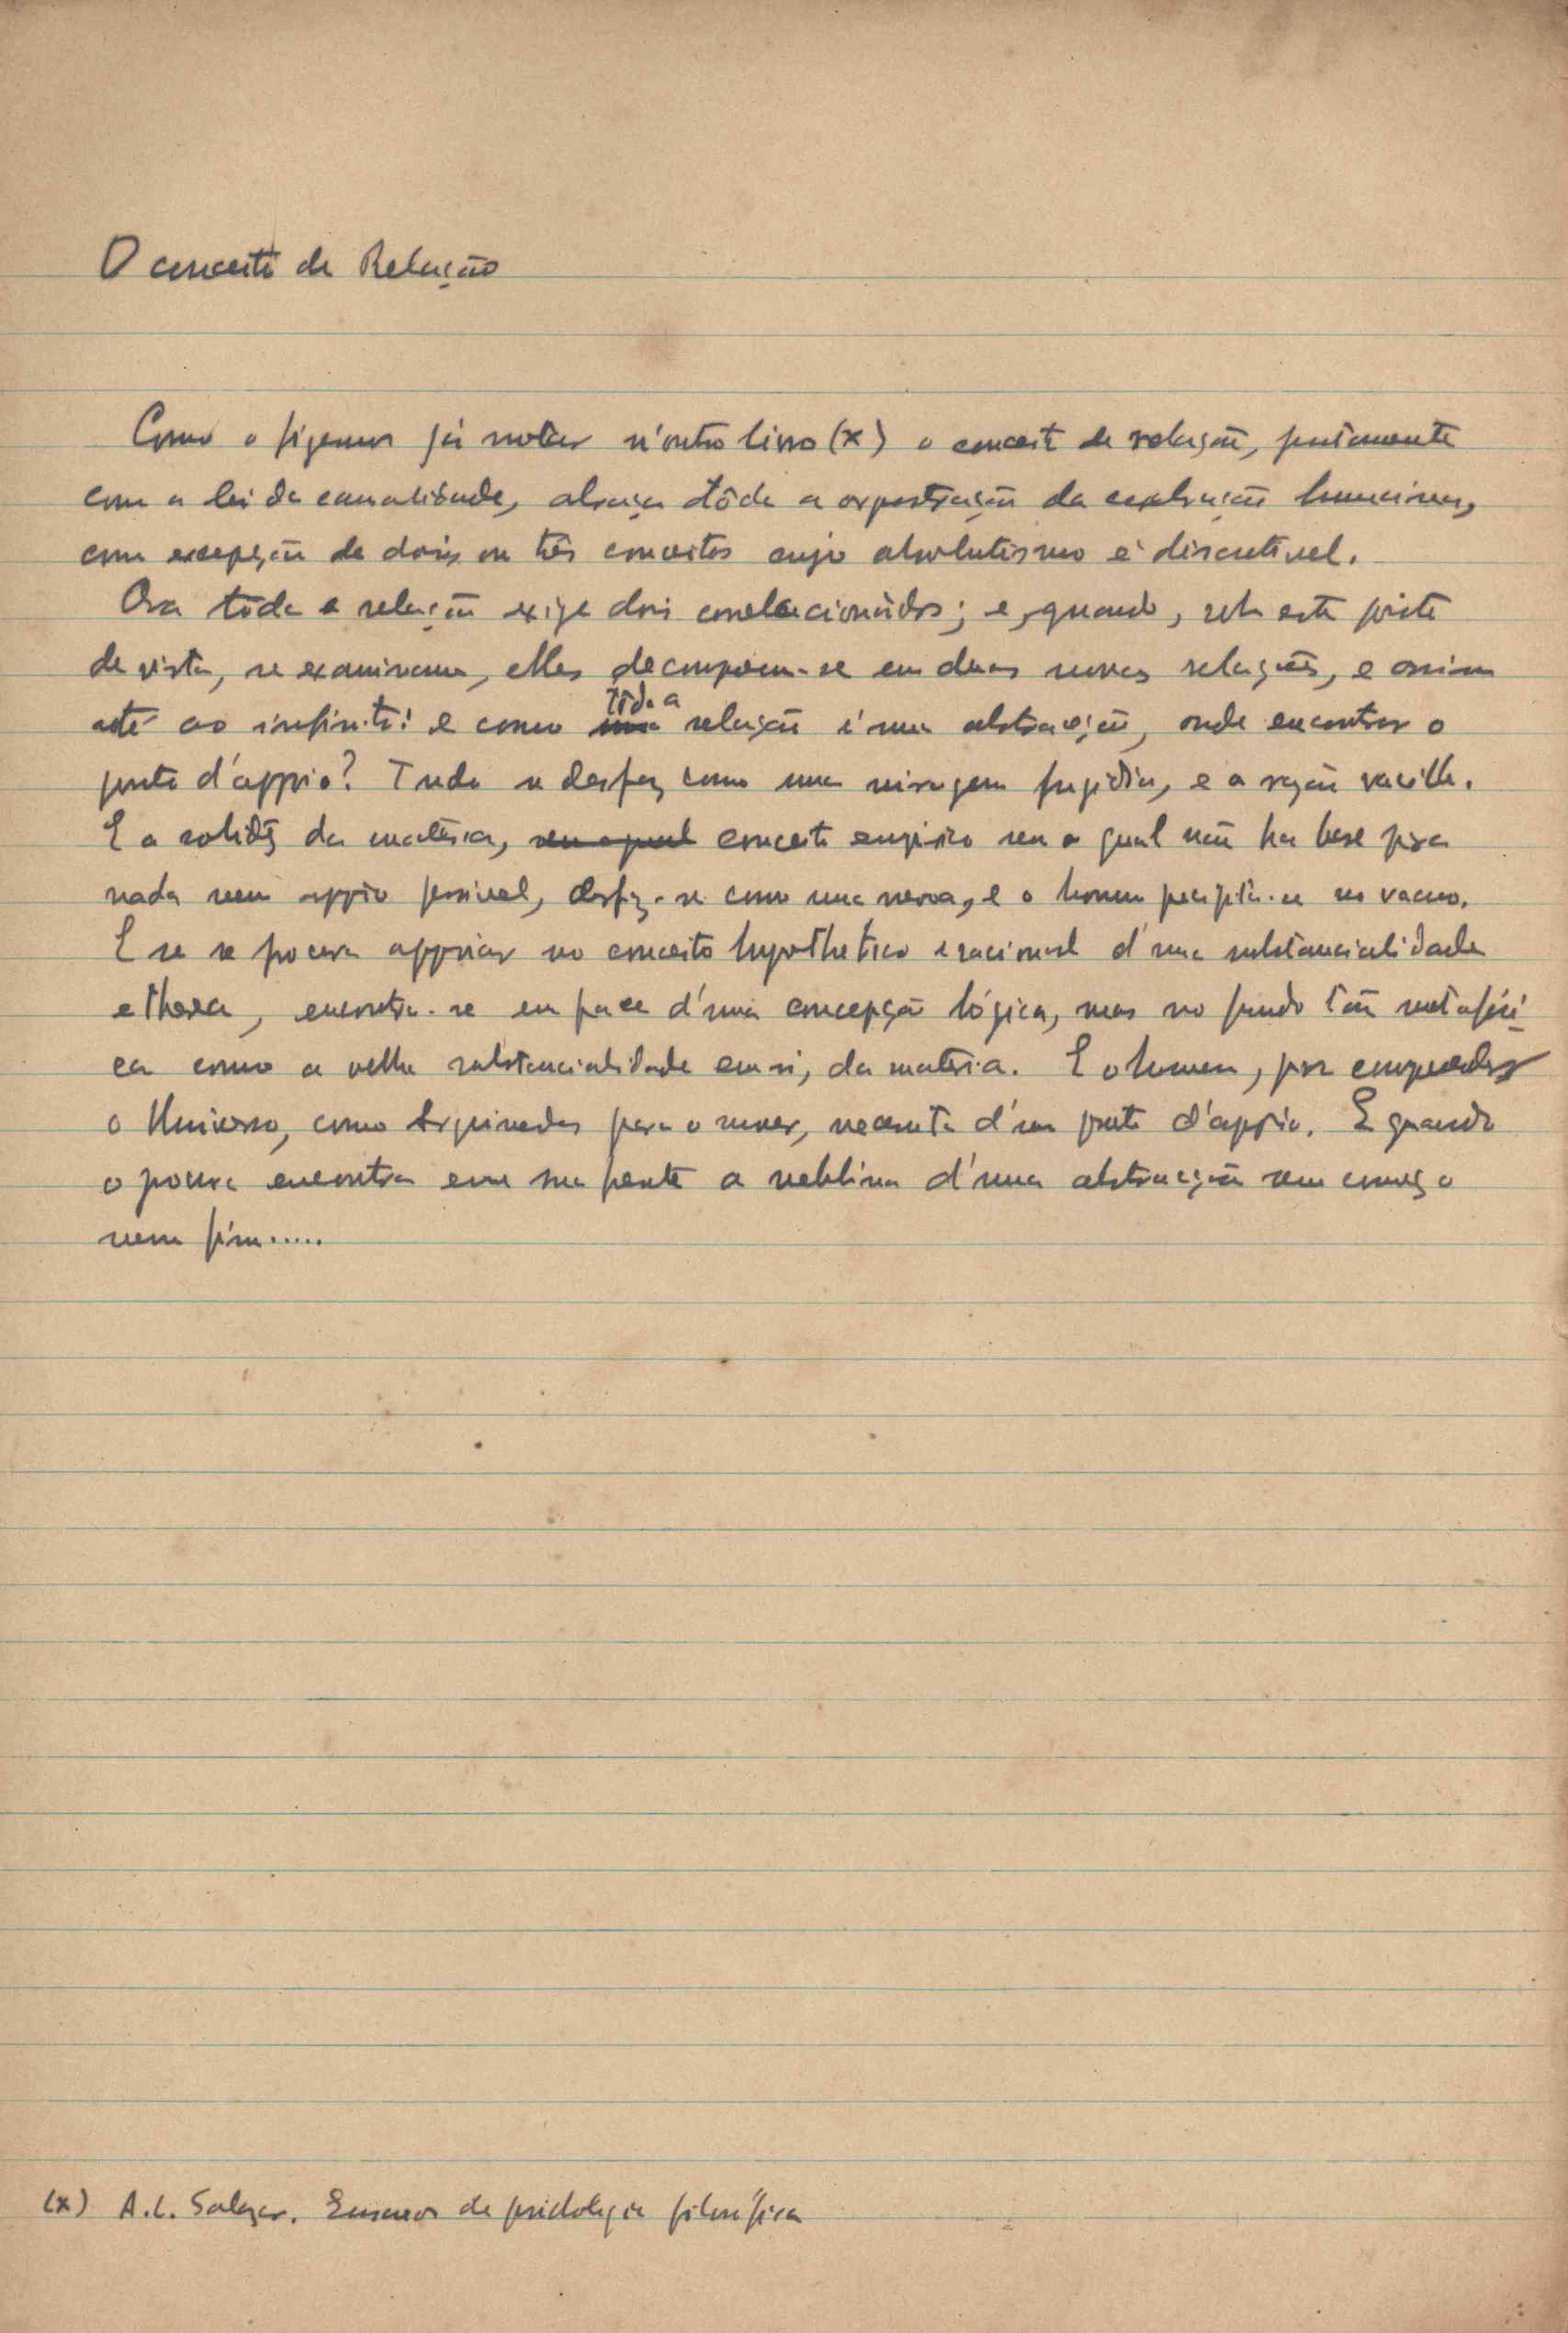 O conceito de Relação
Como o fizemos já notar n'outro livro (x) o conceito de relação, juntamente
com a lei da causalidade, abraça tôda a da explicação humana,
com excepção de dois ou três conceitos cujo absolutismo é discutivel.
Ora tôda a relação exige dois correlacionádos; e, quando, sob este ponto
de vista, se examinam, elles decompoem-se em duas novas relações, e assim
até ao infinito: e como tôda a relação é uma abstracção, onde encontrar o
ponto d'appoio? Tudo se desfaz como uma miragem fugidia, e a razão vacilla.
E a solidês da matéria, sem a qual conceito empirico sem o qual não ha base para
nada nem appoio possivel, desfaz-se como uma nevoa, e o homem precipita-se no vacuo.
E se se procura appoiar no conceito hypothetico e racional d'uma substancialidade
etherea, encontra-se em face d'uma concepção lógica, mas no fundo tão metafisi-
ca como a velha substancialidade em si, da matéria. E o homem, para
o Universo, como Arquimedes para o mover, necessita d'um ponto d'appoio. E quando
o procura encontra em sua frente a neblina d'uma abstracção sem começo
nem fim.....
(x) A.L. Salazar. Ensaios de psicologia filosófica